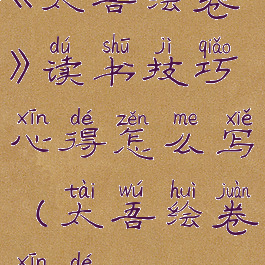 》太吾绘卷
dú shū jì qiǎo
》读书技巧
xīn dé zěn me xiě
心得怎么写
tài wú huì juàn
（太吾绘卷
xīn dé